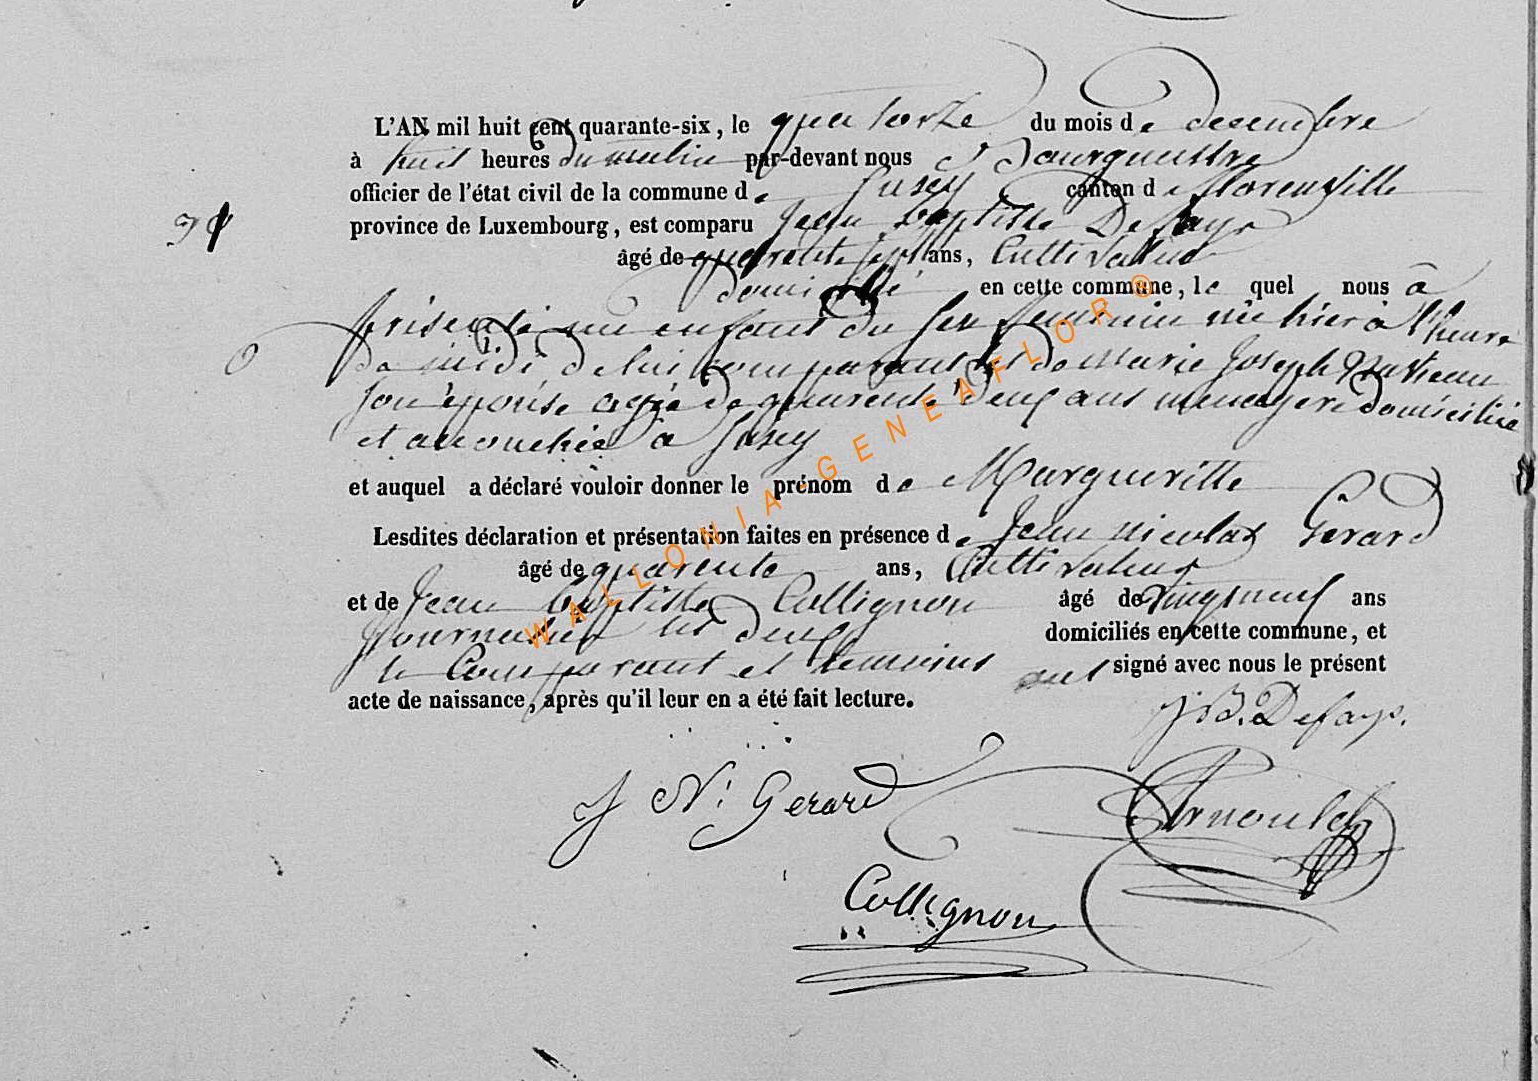 L'AN mil huit cent quarante-six, le quatorze du mois de decembre
à huit heures du matin par-devant nous Bourguestre
officier de l'état civil de la commune de canton de Florenville
province de Luxembourg, est comparu Jean baptiste Defays
âgé de quarente sept ans, Cultivateur
domicilié en cette commune, le quel nous à
présenté un enfant du sex feminin née hier à l'heure
de midi de lui comparant et de Marie Joseph
son épouse agée de quarente deux ans menagere domiciliée
et accouchée à
et auquel a déclaré vouloir donner le prénom de Margueritte
Lesdites déclaration et présentation faites en présence de Jean nicolas Gérard
âgé de quarente ans, Cultivateur
et de Jean baptiste Collignon âgé de vingtneuf ans
Journalier les deux domiciliés en cette commune, et
le Comparant et temoins ont signé avec nous le présent
acte de naissance, après qu'il leur en a été fait lecture.
J.B. Defays.
J N. Gerard
Arnould
Collignon
WALLONIA-GENEAFLOR ®